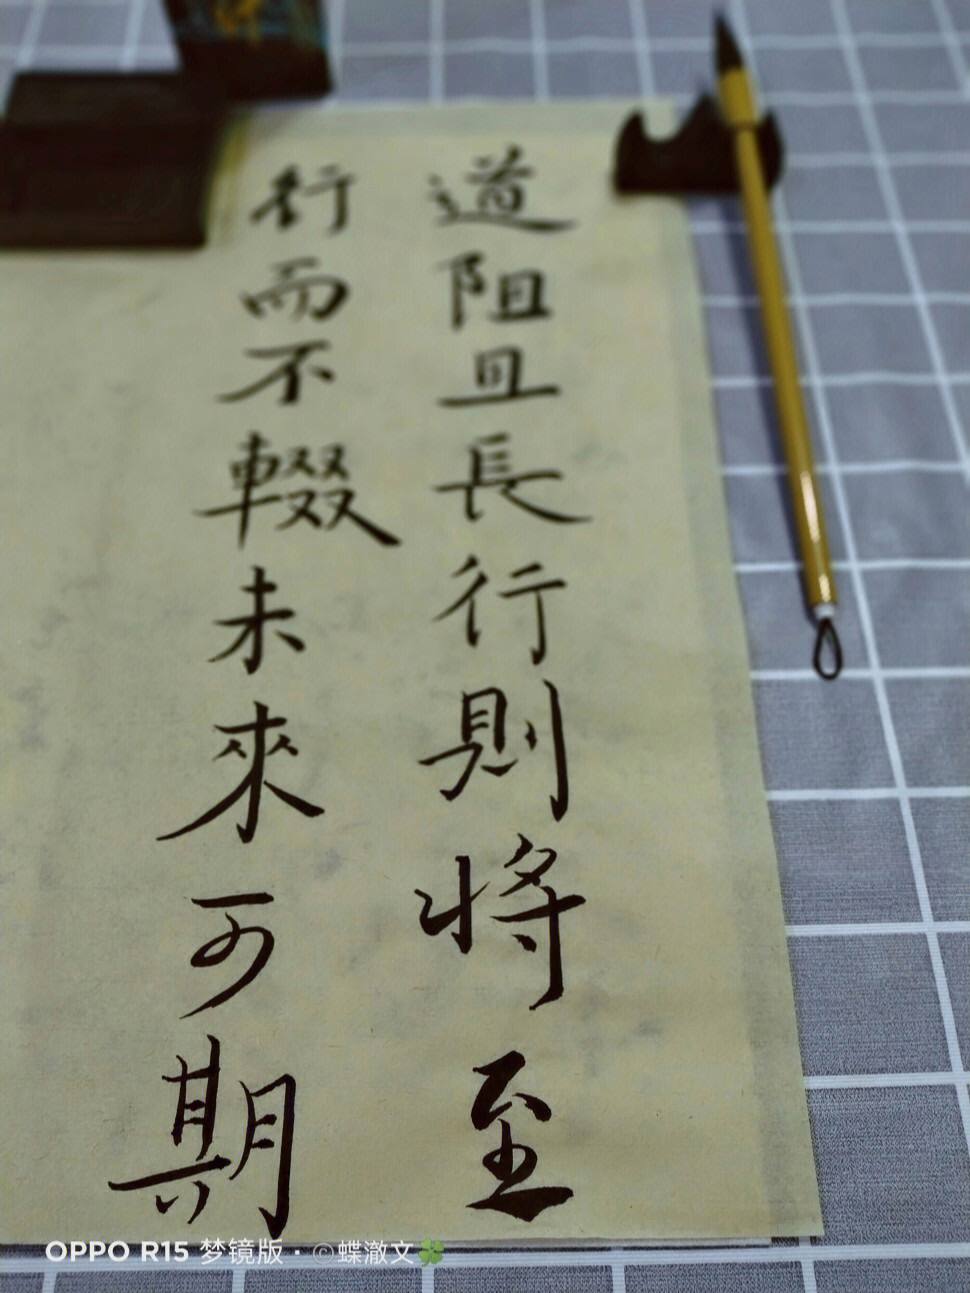 道阻且長行則將至
行而不輟未來可期
OPPO R15 梦镜版 · ©蝶澈文🍀